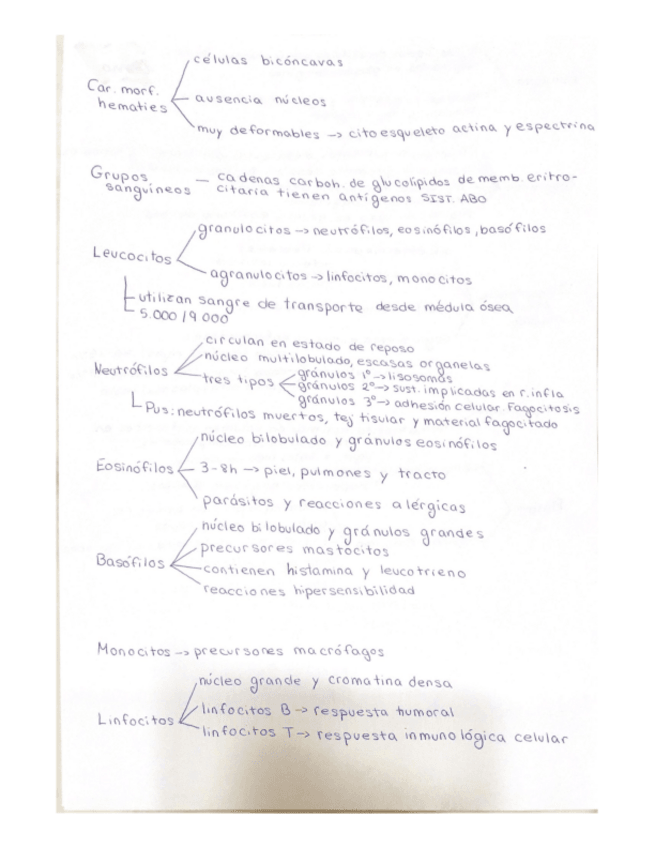 células bicóncavas
Car. morf.
hematíes
ausencia núcleos
muy deformables → citoesqueleto actina y espectrina
Grupos sanguíneos — cadenas carboh. de glucolípidos de memb. eritro-
citaria tienen antígenos SIST. ABO
granulocitos → neutrófilos, eosinófilos, basófilos
Leucocitos
agranulocitos → linfocitos, monocitos
utilizan sangre de transporte desde médula ósea
5.000/9000
circulan en estado de reposo
núcleo multilobulado, escasas organelas
Neutrófilos
tres tipos
gránulos 1º → lisosomas
gránulos 2º → sust. implicadas en r. infla
gránulos 3º → adhesión celular. Fagocitosis
Pus: neutrófilos muertos, tej tisular y material fagocitado
núcleo bilobulado y gránulos eosinófilos
Eosinófilos
3-8h → piel, pulmones y tracto
parásitos y reacciones alérgicas
núcleo bilobulado y gránulos grandes
precursores mastocitos
Basófilos
contienen histamina y leucotrieno
reacciones hipersensibilidad
Monocitos → precursores macrófagos
núcleo grande y cromatina densa
Linfocitos
linfocitos B → respuesta humoral
linfocitos T → respuesta inmunológica celular